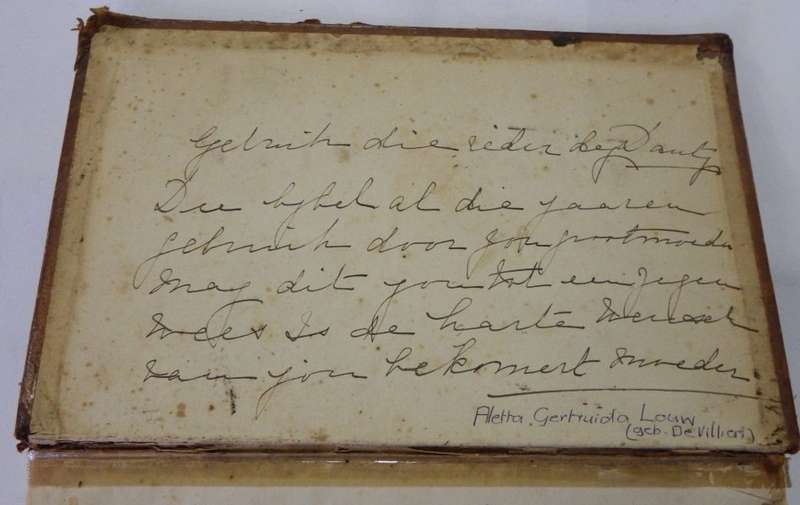 Gebruik die ieder dag Danty
Die bybel al die jaaren
gebruik door jou grootmoeder
Mag dit jou tot een zegen
Wees Is de harte Wensch
van jou bekomert Moeder
Aletta Gertruida Louw
(geb. De Villiers)